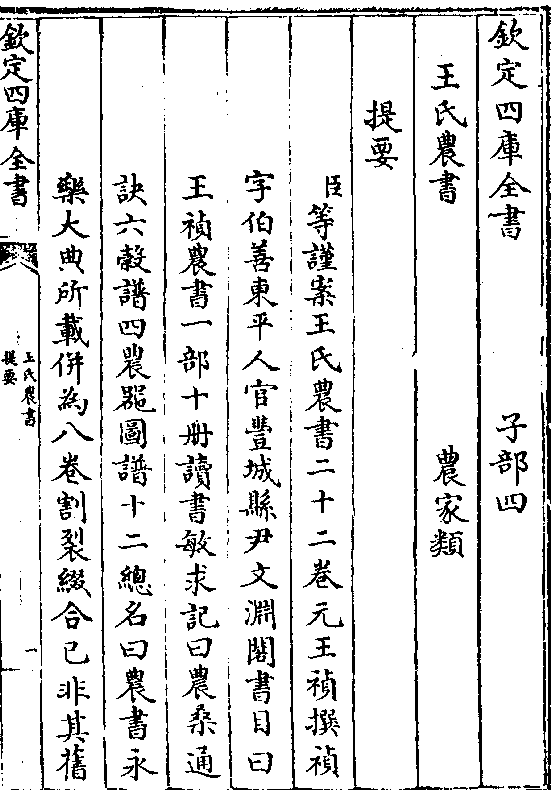 欽定四庫全書 子部四
王氏農書 農家類
提要
臣等謹案王氏農書二十二卷元王禎撰禎
字伯善東平人官豐城縣尹文淵閣書目曰
王禎農書一部十冊讀書敏求記曰農桑通
訣六穀譜四農器圖譜十二總名曰農書永
樂大典所載併為八卷割裂綴合已非其舊
欽定四庫全書
王氏農書
提要
一